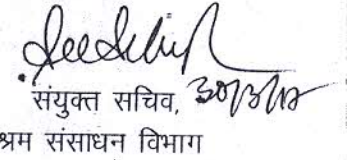 संयुक्त सचिव, 30/3/12
श्रम संसाधन विभाग